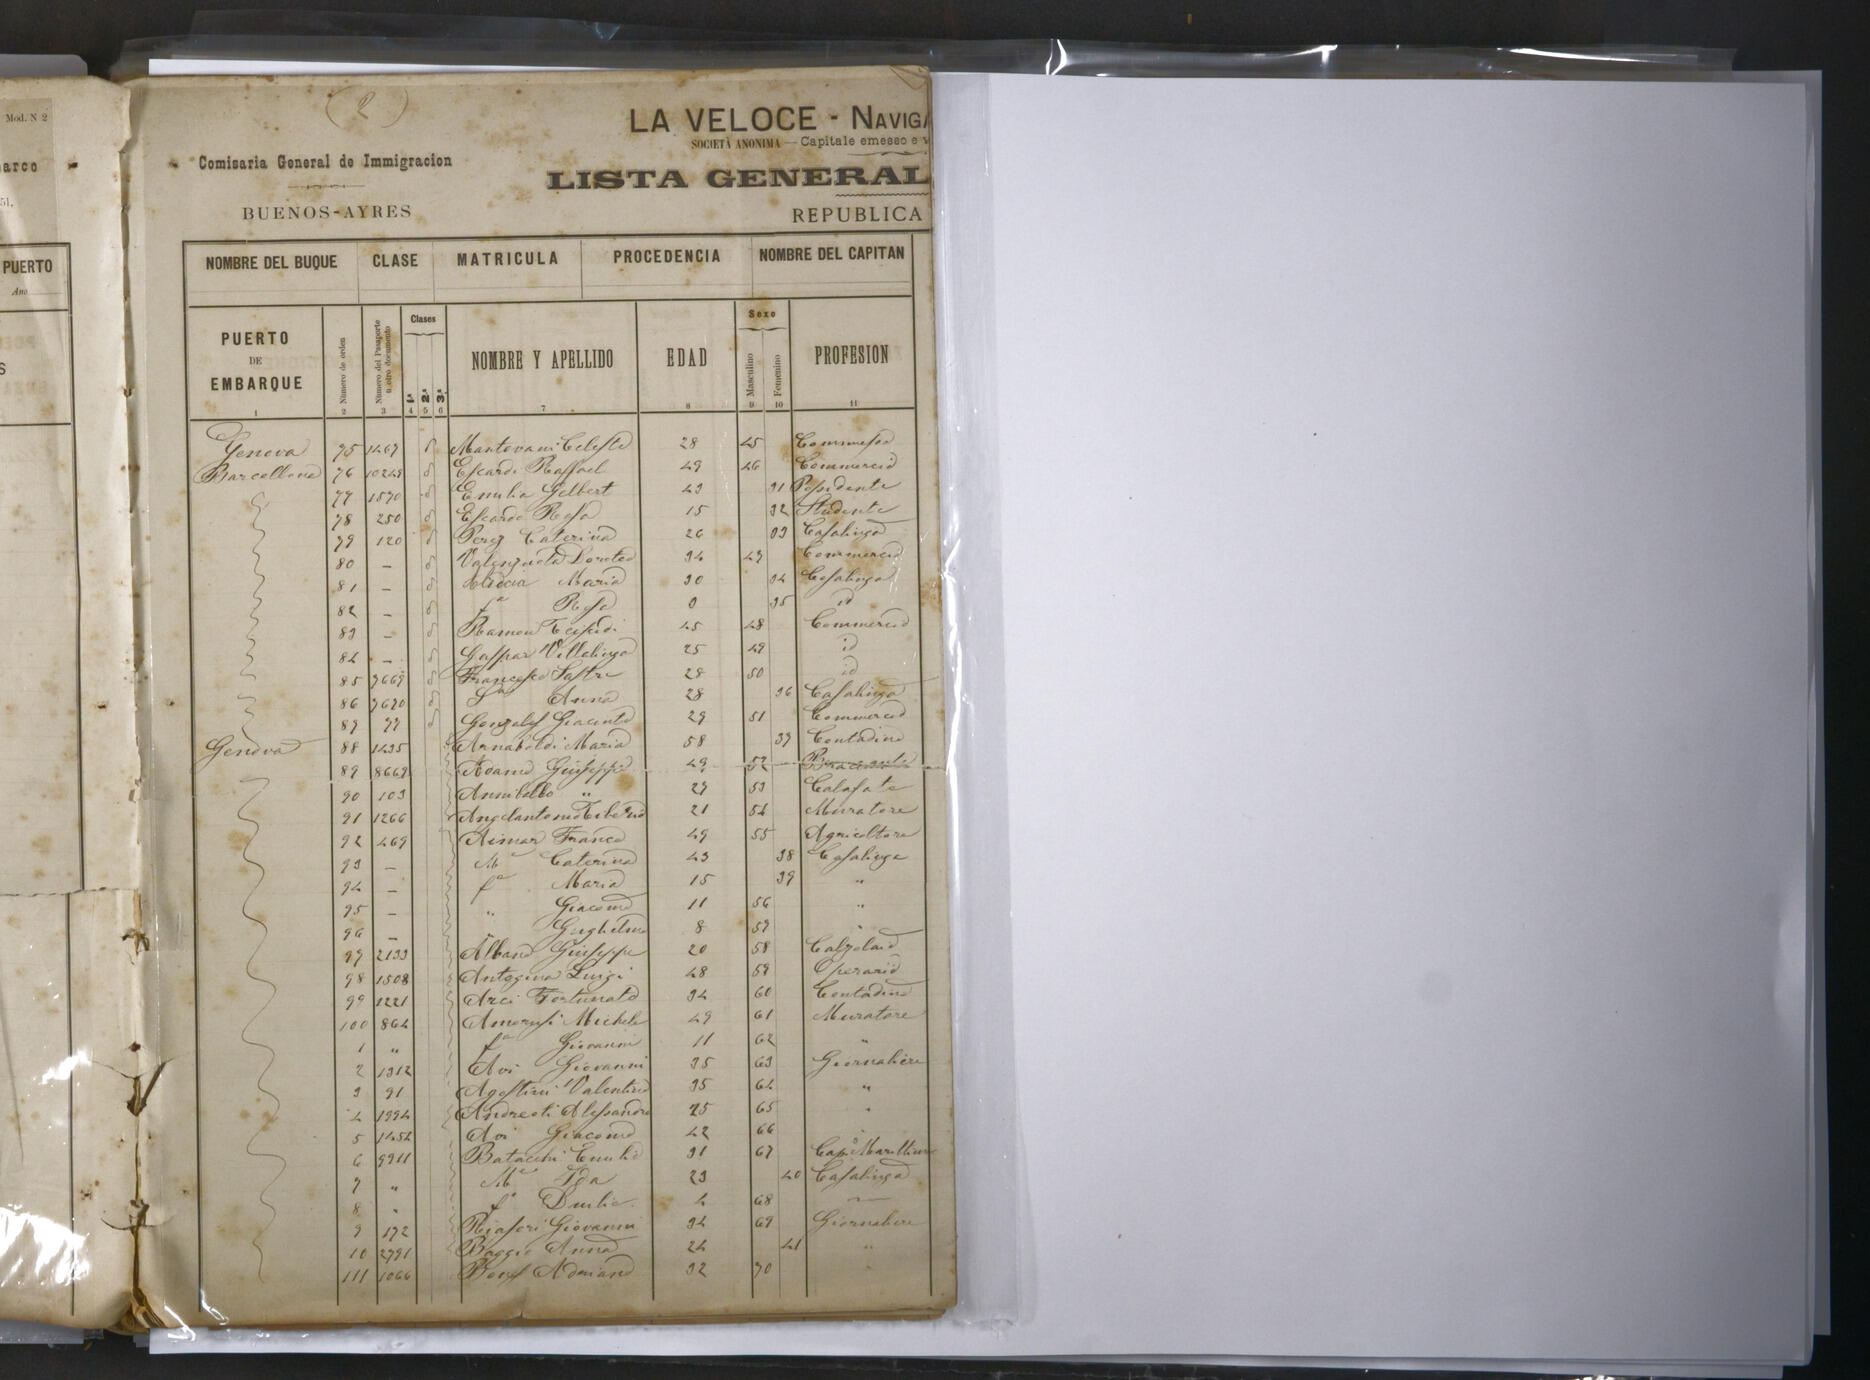 Mod. N 2
arco
51,
PUERTO
Ano
S
(2)
LA VELOCE - NAVIGA
SOCIETÀ ANONIMA — Capitale emesso e v
Comisaria General de Immigracion
LISTA GENERAL
BUENOS-AYRES
REPUBLICA
NOMBRE DEL BUQUE CLASE MATRICULA PROCEDENCIA NOMBRE DEL CAPITAN
PUERTO DE EMBARQUE
Número de orden
Número del Pasaporte u otro documento
Clases
1ª 2ª 3ª
NOMBRE Y APELLIDO
EDAD
Sexo
Masculino
Femenino
PROFESION
1 2 3 4 5 6 7 8 9 10 11
Genova 75 1467 Mantovani Celeste 28 45
Barcellona 76 10249 Escardi Raffael 49 46 Commercio
77 1570 Emilia Gelbert 43 31 Possidente
78 250 Escardo Rosa 15 32 Studente
79 120 Perez Caterina 26 33 Casalinga
80 — 34 47 Commercio
81 — Maria 30 34 Casalinga
82 — fª Rosa 35 id
83 — Ramon 45 48 Commercio
84 — Gaspar Villalonga 25 49 id
85 7669 Francesco Sastre 28 50 id
86 7670 Anna 28 36 Casalinga
87 77 Gonzales Giacinto 29 51 Commercio
Genova 88 1435 Arnaboldi Maria 58 37 Contadina
89 8669 Adamo Giuseppe 49 52 Bracciante
90 103 Annibaldo " 27 53 Calafato
91 1266 Angelantonio Tiberio 21 54 Muratore
92 469 Aimar Franco 49 55 Agricoltore
93 — Mª Caterina 43 38 Casalinga
94 — fª Maria 15 39 "
95 — " Giacomo 11 56 "
96 — " Guglielmo 8 57 "
97 2133 Albano Giuseppe 20 58 Calzolaio
98 1508 Antogina Luigi 48 59 Operario
99 1221 Arci Fortunato 34 60 Contadino
100 864 Amorusi Michele 49 61 Muratore
1 " fª Giovanni 11 62 "
2 1312 Avi Giovanni 35 63 Giornaliere
3 91 Agostini Valentino 35 64 "
4 1994 Andreoli Alessandro 25 65 "
5 1454 Avi Giacomo 42 66
6 9911 Batacchi Emilio 31 67 Cap. Marittimo
7 " Mª Ida 23 40 Casalinga
8 " fº Duilio 4 68 —
9 172 Giovanni 34 69 Giornaliere
10 2791 Baggio Anna 24 41 "
111 1066 Adriano 32 70 "